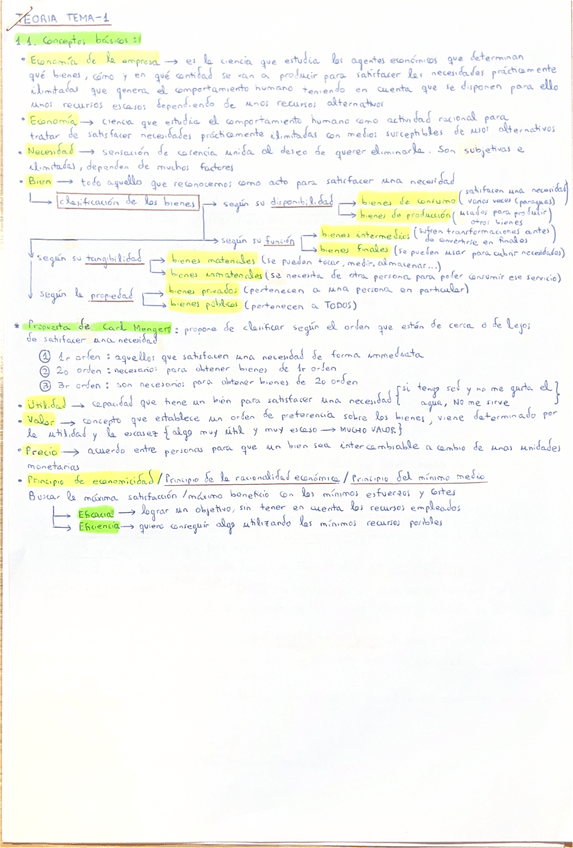 TEORIA TEMA-1
1.1. Conceptos básicos:
• Economía de la empresa → es la ciencia que estudia los agentes económicos que determinan
qué bienes, cómo y en qué cantidad se van a producir para satisfacer las necesidades prácticamente
ilimitadas que genera el comportamiento humano teniendo en cuenta que se disponen para ello
unos recursos escasos dependiendo de unos recursos alternativos
• Economía → ciencia que estudia el comportamiento humano como actividad racional para
tratar de satisfacer necesidades prácticamente ilimitadas con medios susceptibles de usos alternativos
• Necesidad → sensación de carencia unida al deseo de querer eliminarla. Son subjetivas e
ilimitadas, dependen de muchos factores
• Bien → todo aquello que reconocemos como acto para satisfacer una necesidad
clasificación de los bienes → según su disponibilidad → bienes de consumo (satisfacen una necesidad varias veces (paraguas)
→ bienes de producción (usados para producir otros bienes)
→ según su función → bienes intermedios (sufren transformaciones antes de convertirse en finales)
→ bienes finales (se pueden usar para cubrir necesidades)
según su tangibilidad → bienes materiales (se pueden tocar, medir, almacenar...)
→ bienes inmateriales (se necesita de otra persona para poder consumir ese servicio)
según la propiedad → bienes privados (pertenecen a una persona en particular)
→ bienes públicos (pertenecen a TODOS)
• Propuesta de Carl Menger: propone de clasificar según el orden que están de cerca o de lejos
de satisfacer una necesidad
1 1r orden: aquellos que satisfacen una necesidad de forma inmediata
2 2o orden: necesarios para obtener bienes de 1r orden
3 3r orden: son necesarios para obtener bienes de 2o orden
• Utilidad → capacidad que tiene un bien para satisfacer una necesidad {si tengo sed y no me gusta el agua, NO me sirve}
• Valor → concepto que establece un orden de preferencia sobre los bienes, viene determinado por
la utilidad y la escasez {algo muy útil y muy escaso → MUCHO VALOR}
• Precio → acuerdo entre personas para que un bien sea intercambiable a cambio de unas unidades
monetarias
• Principio de economicidad / Principio de la racionalidad económica / Principio del mínimo medio
Buscar la máxima satisfacción / máximo beneficio con los mínimos esfuerzos y costes
→ Eficacia → lograr un objetivo, sin tener en cuenta los recursos empleados
→ Eficiencia → quiero conseguir algo utilizando los mínimos recursos posibles